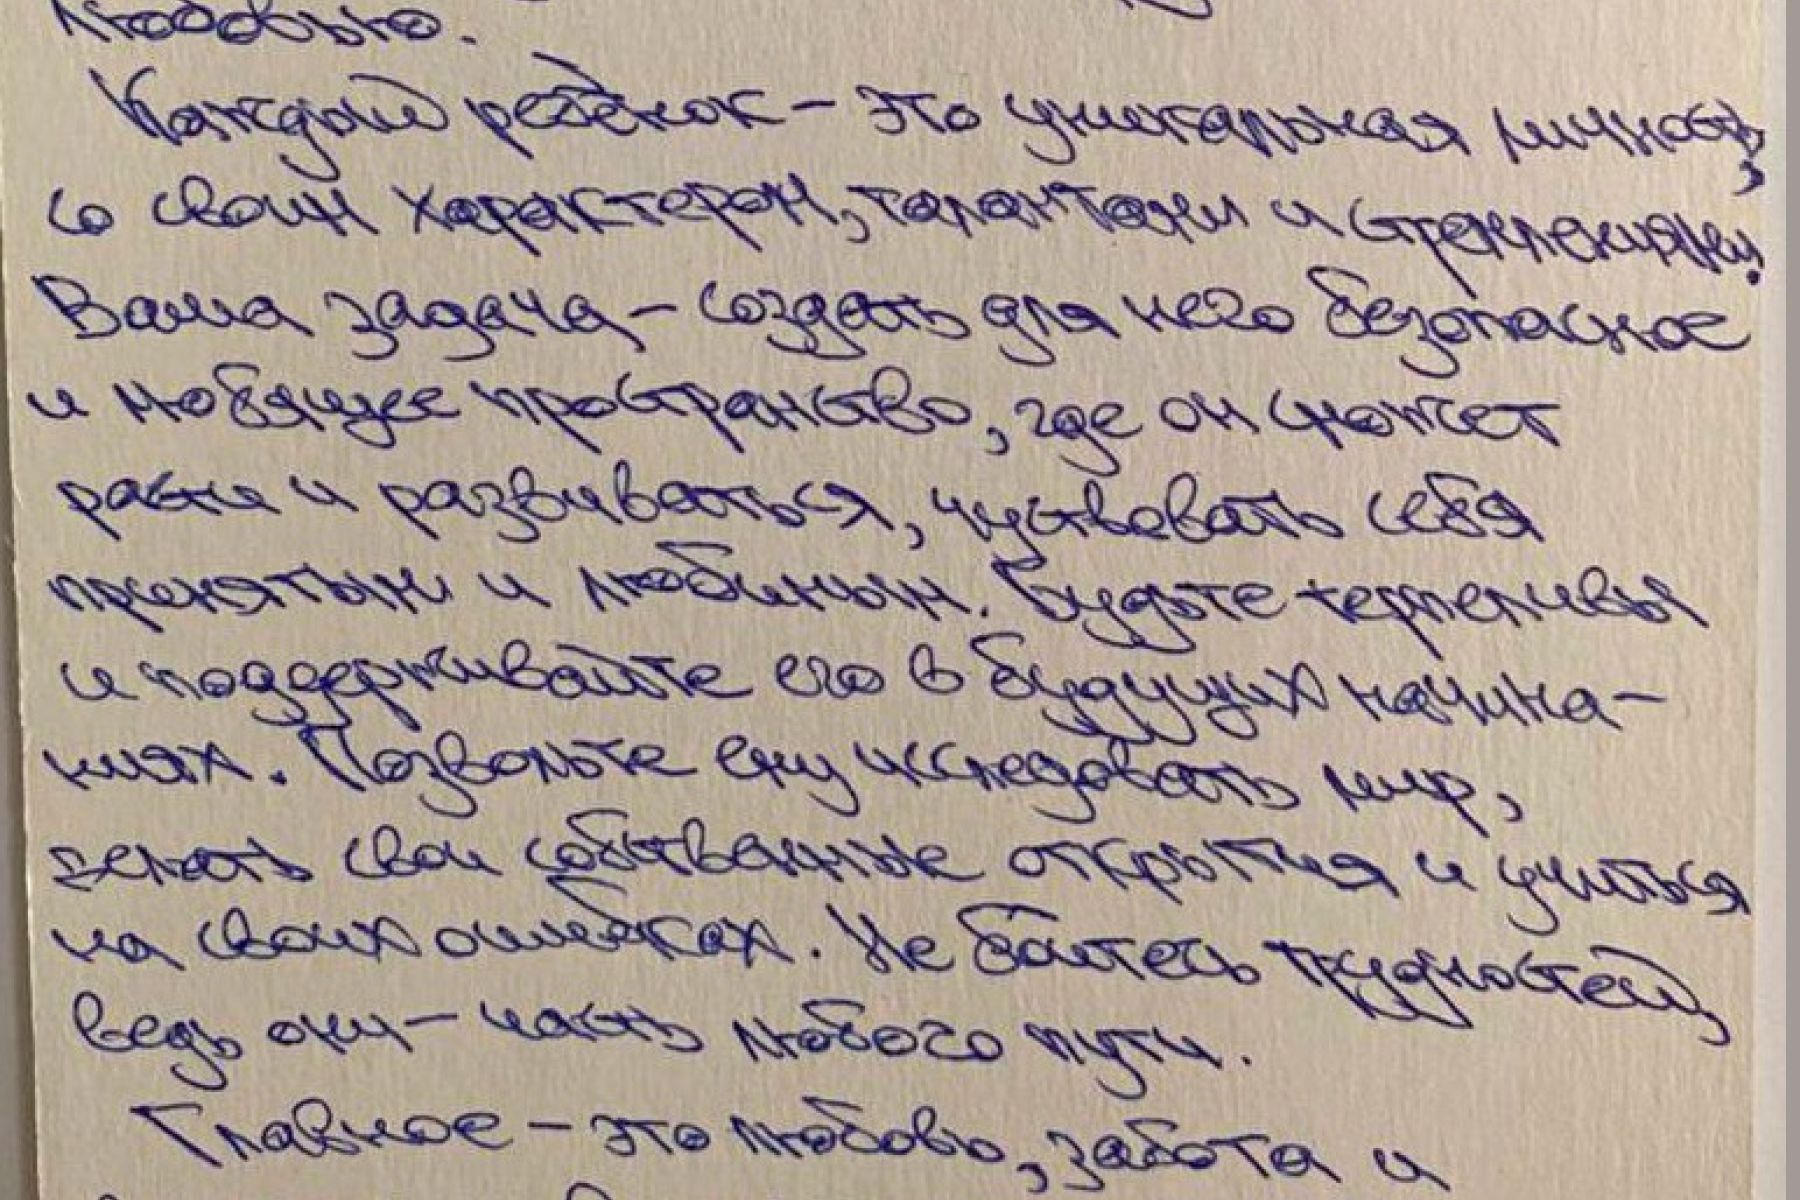 любовью.
Каждый ребёнок – это уникальная личность,
со своим характером, талантами и стремлениями.
Ваша задача – создать для него безопасное
и любящее пространство, где он сможет
расти и развиваться, чувствовать себя
принятым и любимым. Будьте терпеливы
и поддерживайте его в будущих начина-
ниях. Позвольте ему исследовать мир,
делать свои собственные открытия и учиться
на своих ошибках. Не бойтесь трудностей,
ведь они – часть любого пути.
Главное – это любовь, забота и